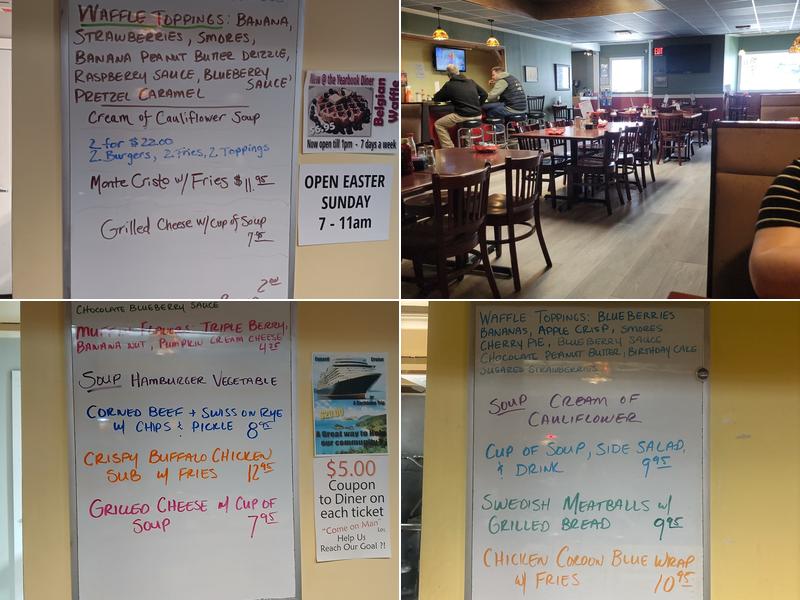 WAFFLE TOPPINGS: BANANA,
STRAWBERRIES, SMORES,
BANANA PEANUT BUTTER DRIZZLE,
RASPBERRY SAUCE, BLUEBERRY
SAUCE,
PRETZEL CARAMEL
CREAM OF CAULIFLOWER SOUP
2 for $22.00
2 Burgers, 2 Fries, 2 Toppings
MONTE CRISTO W/ FRIES $11.95
GRILLED CHEESE W/ CUP OF SOUP
7.95
2.00
New @ the Yearbook Diner
Belgian
Waffle
$6.95
Now open till 1pm - 7 days a week
OPEN EASTER
SUNDAY
7 - 11am
EXIT
CHOCOLATE BLUEBERRY SAUCE
MUFFIN FLAVORS: TRIPLE BERRY,
BANANA NUT, PUMPKIN CREAM CHEESE
4.25
SOUP HAMBURGER VEGETABLE
CORNED BEEF + SWISS ON RYE
W/ CHIPS & PICKLE 8.95
CRISPY BUFFALO CHICKEN
SUB W/ FRIES 12.95
GRILLED CHEESE W/ CUP OF
SOUP 7.95
Cruise
$20.00
A Great way to Help
our community
$5.00
Coupon
to Diner on
each ticket
"Come on Man"
Help Us
Reach Our Goal ?!
WAFFLE TOPPINGS: BLUEBERRIES
BANANAS, APPLE CRISP, SMORES
CHERRY PIE, BLUEBERRY SAUCE
CHOCOLATE PEANUT BUTTER, BIRTHDAY CAKE
SUGARED STRAWBERRIES
SOUP CREAM OF
CAULIFLOWER
CUP OF SOUP, SIDE SALAD,
& DRINK 9.95
SWEDISH MEATBALLS W/
GRILLED BREAD 9.95
CHICKEN CORDON BLUE WRAP
W/ FRIES 10.95